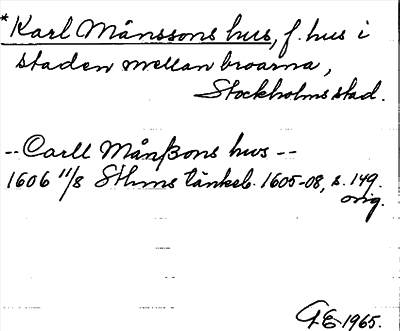 *Karl Månssons hus, f. hus i
staden mellan broarna,
Stockholms stad.
-- Carll Månßons hws --
1606 11/8 Sthms tänkeb. 1605-08, s. 149.
orig.
GE 1965.